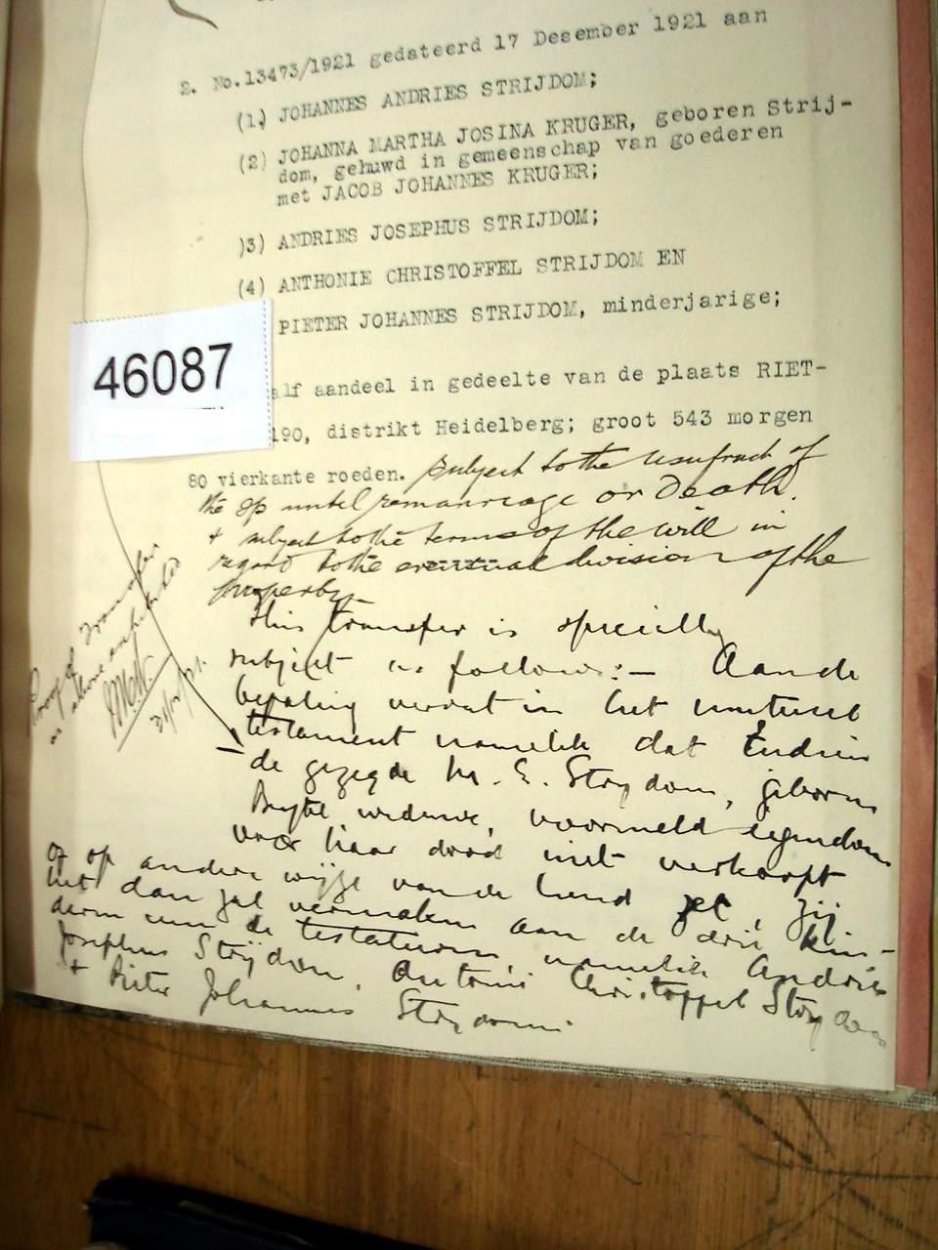 2. No.13473/1921 gedateerd 17 Desember 1921 aan
(1) JOHANNES ANDRIES STRIJDOM;
(2) JOHANNA MARTHA JOSINA KRUGER, geboren Strij-
dom, gehuwd in gemeenschap van goederen
met JACOB JOHANNES KRUGER;
)3) ANDRIES JOSEPHUS STRIJDOM;
(4) ANTHONIE CHRISTOFFEL STRIJDOM EN
PIETER JOHANNES STRIJDOM, minderjarige;
46087
alf aandeel in gedeelte van de plaats RIET-
190, distrikt Heidelberg; groot 543 morgen
80 vierkante roeden. subject to the usufruct of
the sp until remarriage or Death.
+ subject to the terms of the will in
regard to the eventual division of the
property.
This transfer is specially
subject as follows:— Aan de
bepaling vervat in het mutueel
testament namelik dat Indien
de gezegde M. E. Strydom, geboren
weduwe, voormeld eigendom
voor haar dood niet verkoopt
of op andere wijze van de hand zet, zij
het dan zal vermaken aan de drie kin-
deren van de testateuren, namelik Andries
Josephus Strijdom, Antonie Christoffel Strydom
+ Pieter Johannes Strydom.
Transfer
31/12/21.